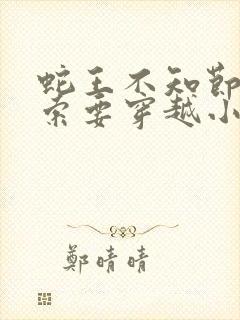 蛇王不知節
索要穿越小
鄭晴晴